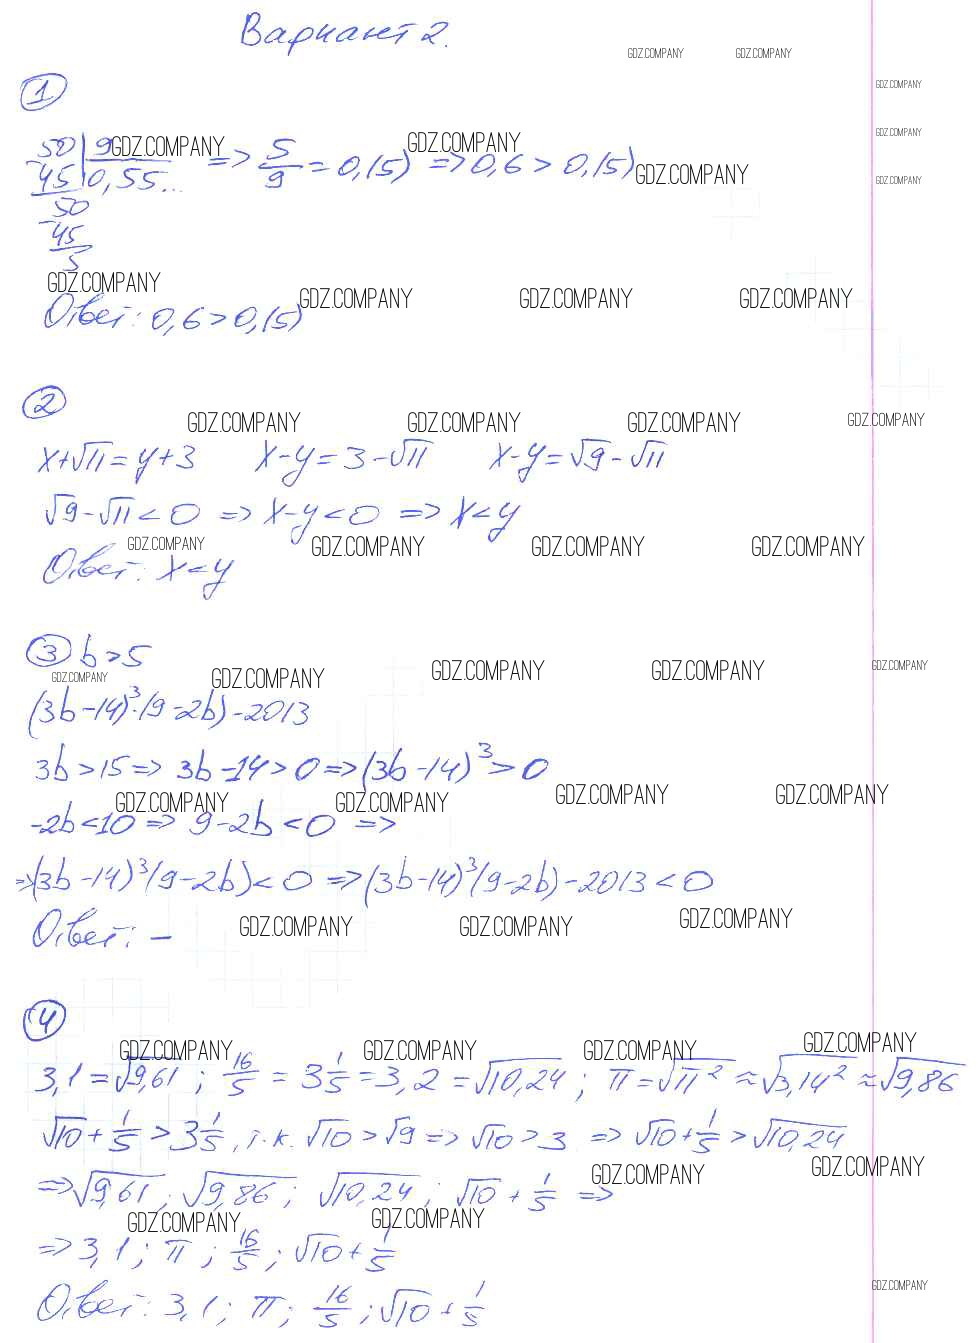 Вариант 2.
GDZ.COMPANY GDZ.COMPANY
1
GDZ.COMPANY
50 | 9 GDZ.COMPANY => 5/9 = 0,(5) GDZ.COMPANY => 0,6 > 0,(5) GDZ.COMPANY
GDZ.COMPANY
-45 0,55...
GDZ.COMPANY
50
-45
5
GDZ.COMPANY
GDZ.COMPANY GDZ.COMPANY GDZ.COMPANY
Ответ: 0,6 > 0,(5)
2
GDZ.COMPANY GDZ.COMPANY GDZ.COMPANY GDZ.COMPANY
x+√11 = y+3 x-y = 3-√11 x-y = √9-√11
√9-√11 < 0 => x-y < 0 => x < y
GDZ.COMPANY GDZ.COMPANY GDZ.COMPANY GDZ.COMPANY
Ответ: x < y
3 b > 5
GDZ.COMPANY GDZ.COMPANY GDZ.COMPANY GDZ.COMPANY GDZ.COMPANY
(3b-14)³·(9-2b)-2013
3b > 15 => 3b-14 > 0 => (3b-14)³ > 0
GDZ.COMPANY GDZ.COMPANY GDZ.COMPANY GDZ.COMPANY
-2b < 10 => 9-2b < 0 =>
=> (3b-14)³(9-2b) < 0 => (3b-14)³(9-2b)-2013 < 0
GDZ.COMPANY GDZ.COMPANY GDZ.COMPANY
Ответ: -
4
GDZ.COMPANY GDZ.COMPANY GDZ.COMPANY GDZ.COMPANY
3,1 = √9,61 ; 16/5 = 3 1/5 = 3,2 = √10,24 ; π = √π² ≈ √3,14² ≈ √9,86
√10 + 1/5 > 3 1/5, т.к. √10 > √9 => √10 > 3 => √10 + 1/5 > √10,24
GDZ.COMPANY GDZ.COMPANY
=> √9,61 ; √9,86 ; √10,24 ; √10 + 1/5 =>
GDZ.COMPANY GDZ.COMPANY
=> 3,1 ; π ; 16/5 ; √10 + 1/5
GDZ.COMPANY
Ответ: 3,1 ; π ; 16/5 ; √10 + 1/5